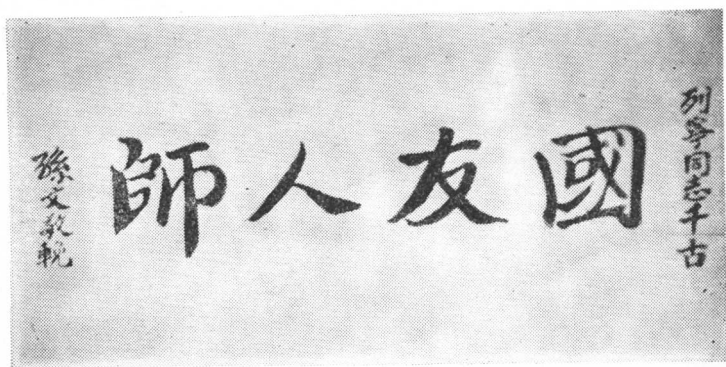 列寧同志千古
國友人師
孫文敬輓